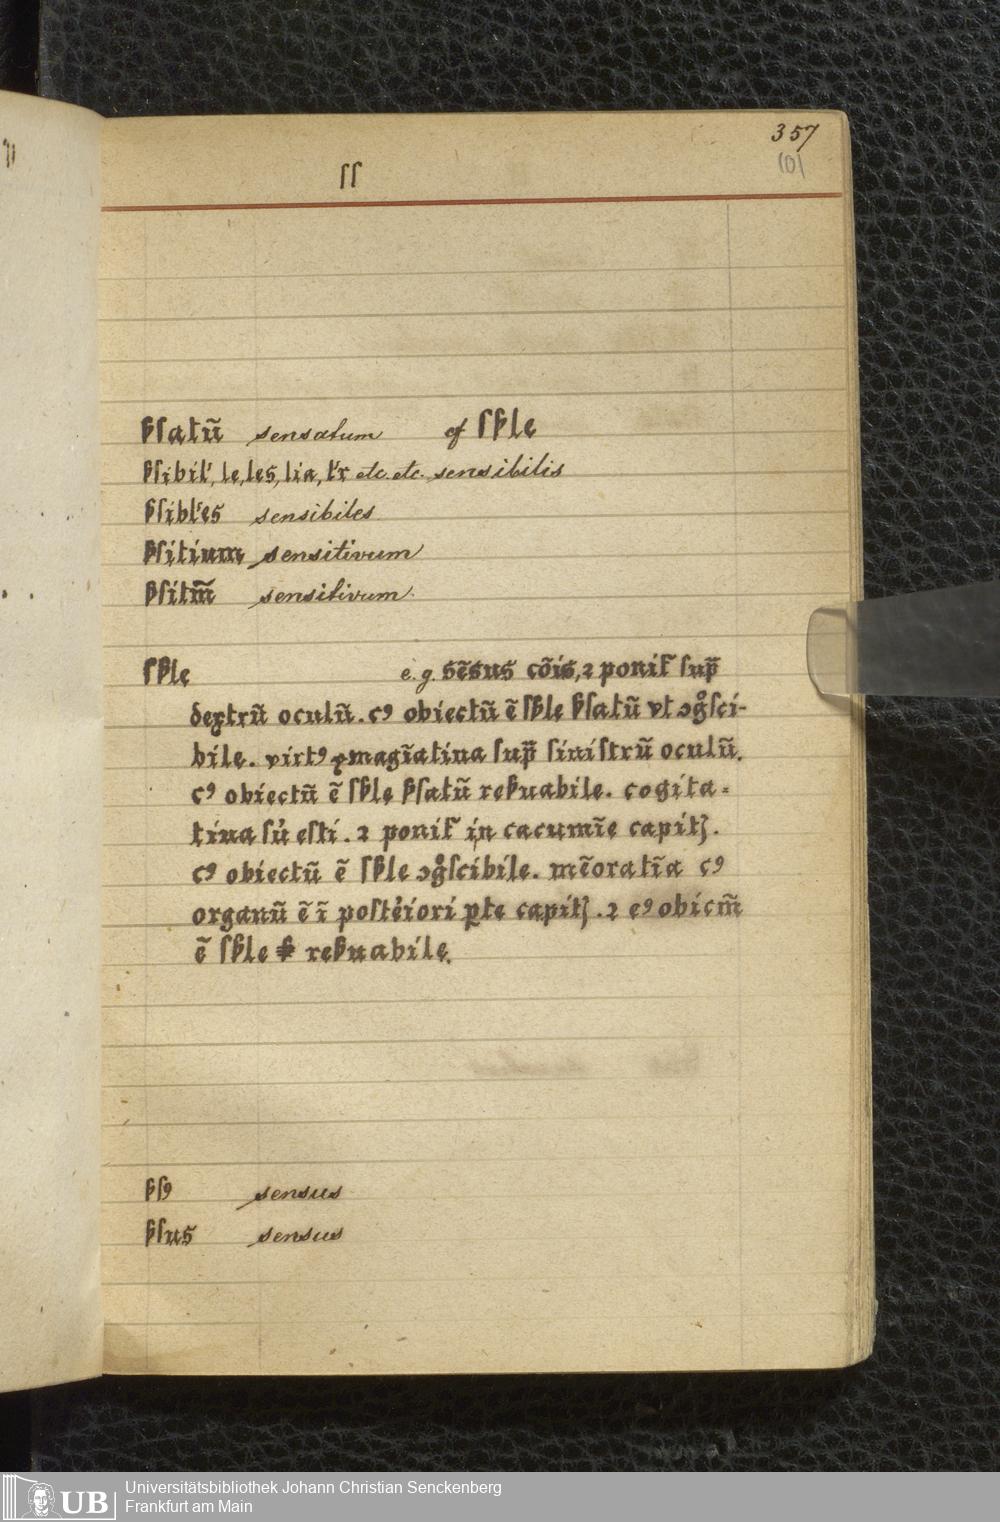 357
(0)
ſſ
ꝟſatū sensatum cf ſꝟle
ꝟſibil', le, les, lia, l'r etc. etc. sensibilis
ꝟſibl'es sensibiles
ꝟſitium sensitivum
ꝟſitm̃ sensitivum
ſꝟle e.g. sēsus cōis, ⁊ ponit᷑ ſup̄
dextrū oculū. cꝰ obiectū ē ſꝟle ꝟſatū vt ſci-
bile. virtꝰ ymagīatina ſup̄ ſiniſtrū oculū.
cꝰ obiectū ē ſꝟle ꝟſatū reꝟuabile. cogita-
tiua eſti. ⁊ ponit᷑ in cacumīe capitꝫ.
cꝰ obiectū ē ſꝟle ſcibile. mēoratīa cꝰ
organū ē ī poſteriori ꝑte capitꝫ. ⁊ eꝰ obicm̄
ē ſꝟle reꝟuabile.
ꝟſꝰ sensus
ꝟſus sensus
UB
Universitätsbibliothek Johann Christian Senckenberg
Frankfurt am Main